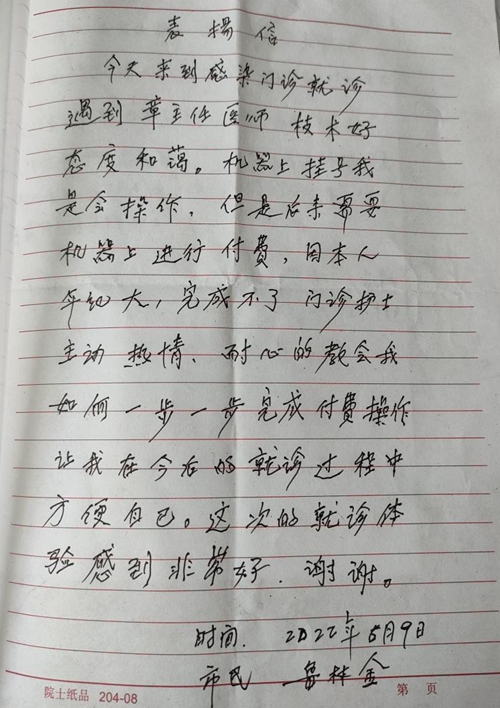 表揚信
今天来到感染门诊就诊
遇到章主任医师 技术好
态度和蔼。机器上挂号我
是会操作，但是后来需要
机器上进行付费，因本人
年纪大，完成不了门诊护士
主动热情、耐心的教会我
如何一步一步完成付费操作
让我在今后的就诊过程中
方便自已。这次的就诊体
验感到非常好．谢谢。
时间．2022年5月9日
市民 鲁
院士纸品 204-08 第 页